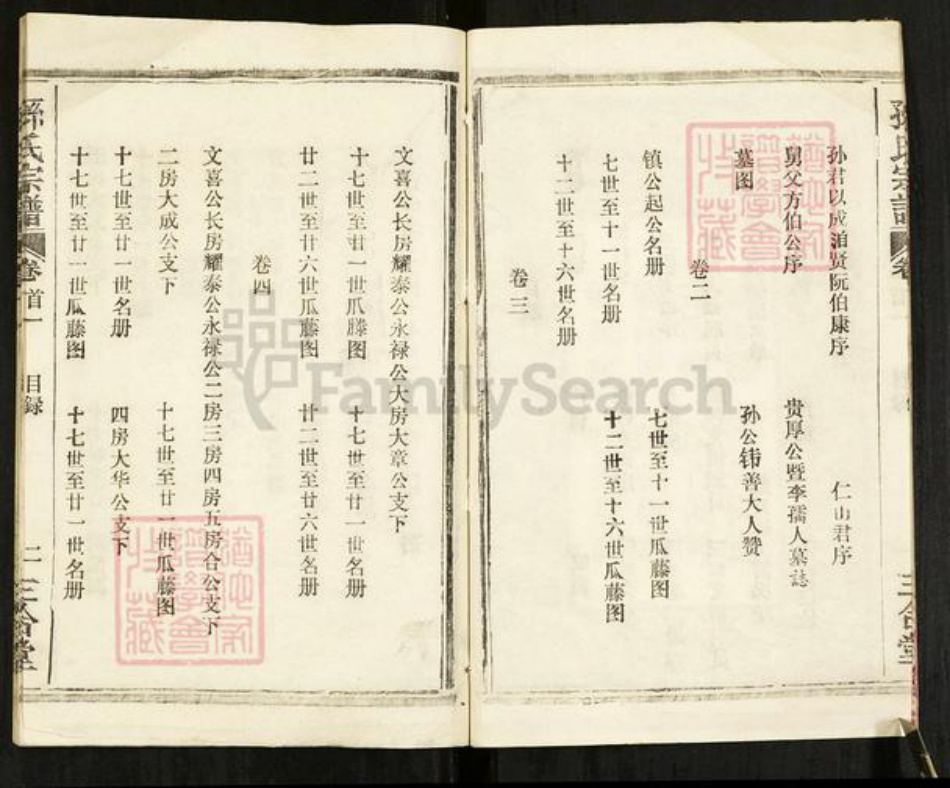 孙君以成洎贤阮伯康序
仁山君序
舅父方伯公序
贵厚公暨李孺人墓誌
墓图
孙公铸善大人赞
卷二
镇公起公名册
七世至十一世瓜藤图
七世至十一世名册
十二世至十六世瓜藤图
十二世至十六世名册
卷三
三合堂
文喜公长房耀泰公永禄公大房大章公支下
十七世至廿一世瓜滕图
十七世至廿一世名册
廿二世至廿六世瓜藤图
廿二世至廿六世名册
卷四
文喜公长房耀泰公永禄公二房三房四房五房合公支下
二房大成公支下
十七世至廿一世瓜藤图
十七世至廿一世名册
四房大华公支下
十七世至廿一世瓜藤图
十七世至廿一世名册
孫氏宗譜 卷首一 目録 二 三合堂
FamilySearch